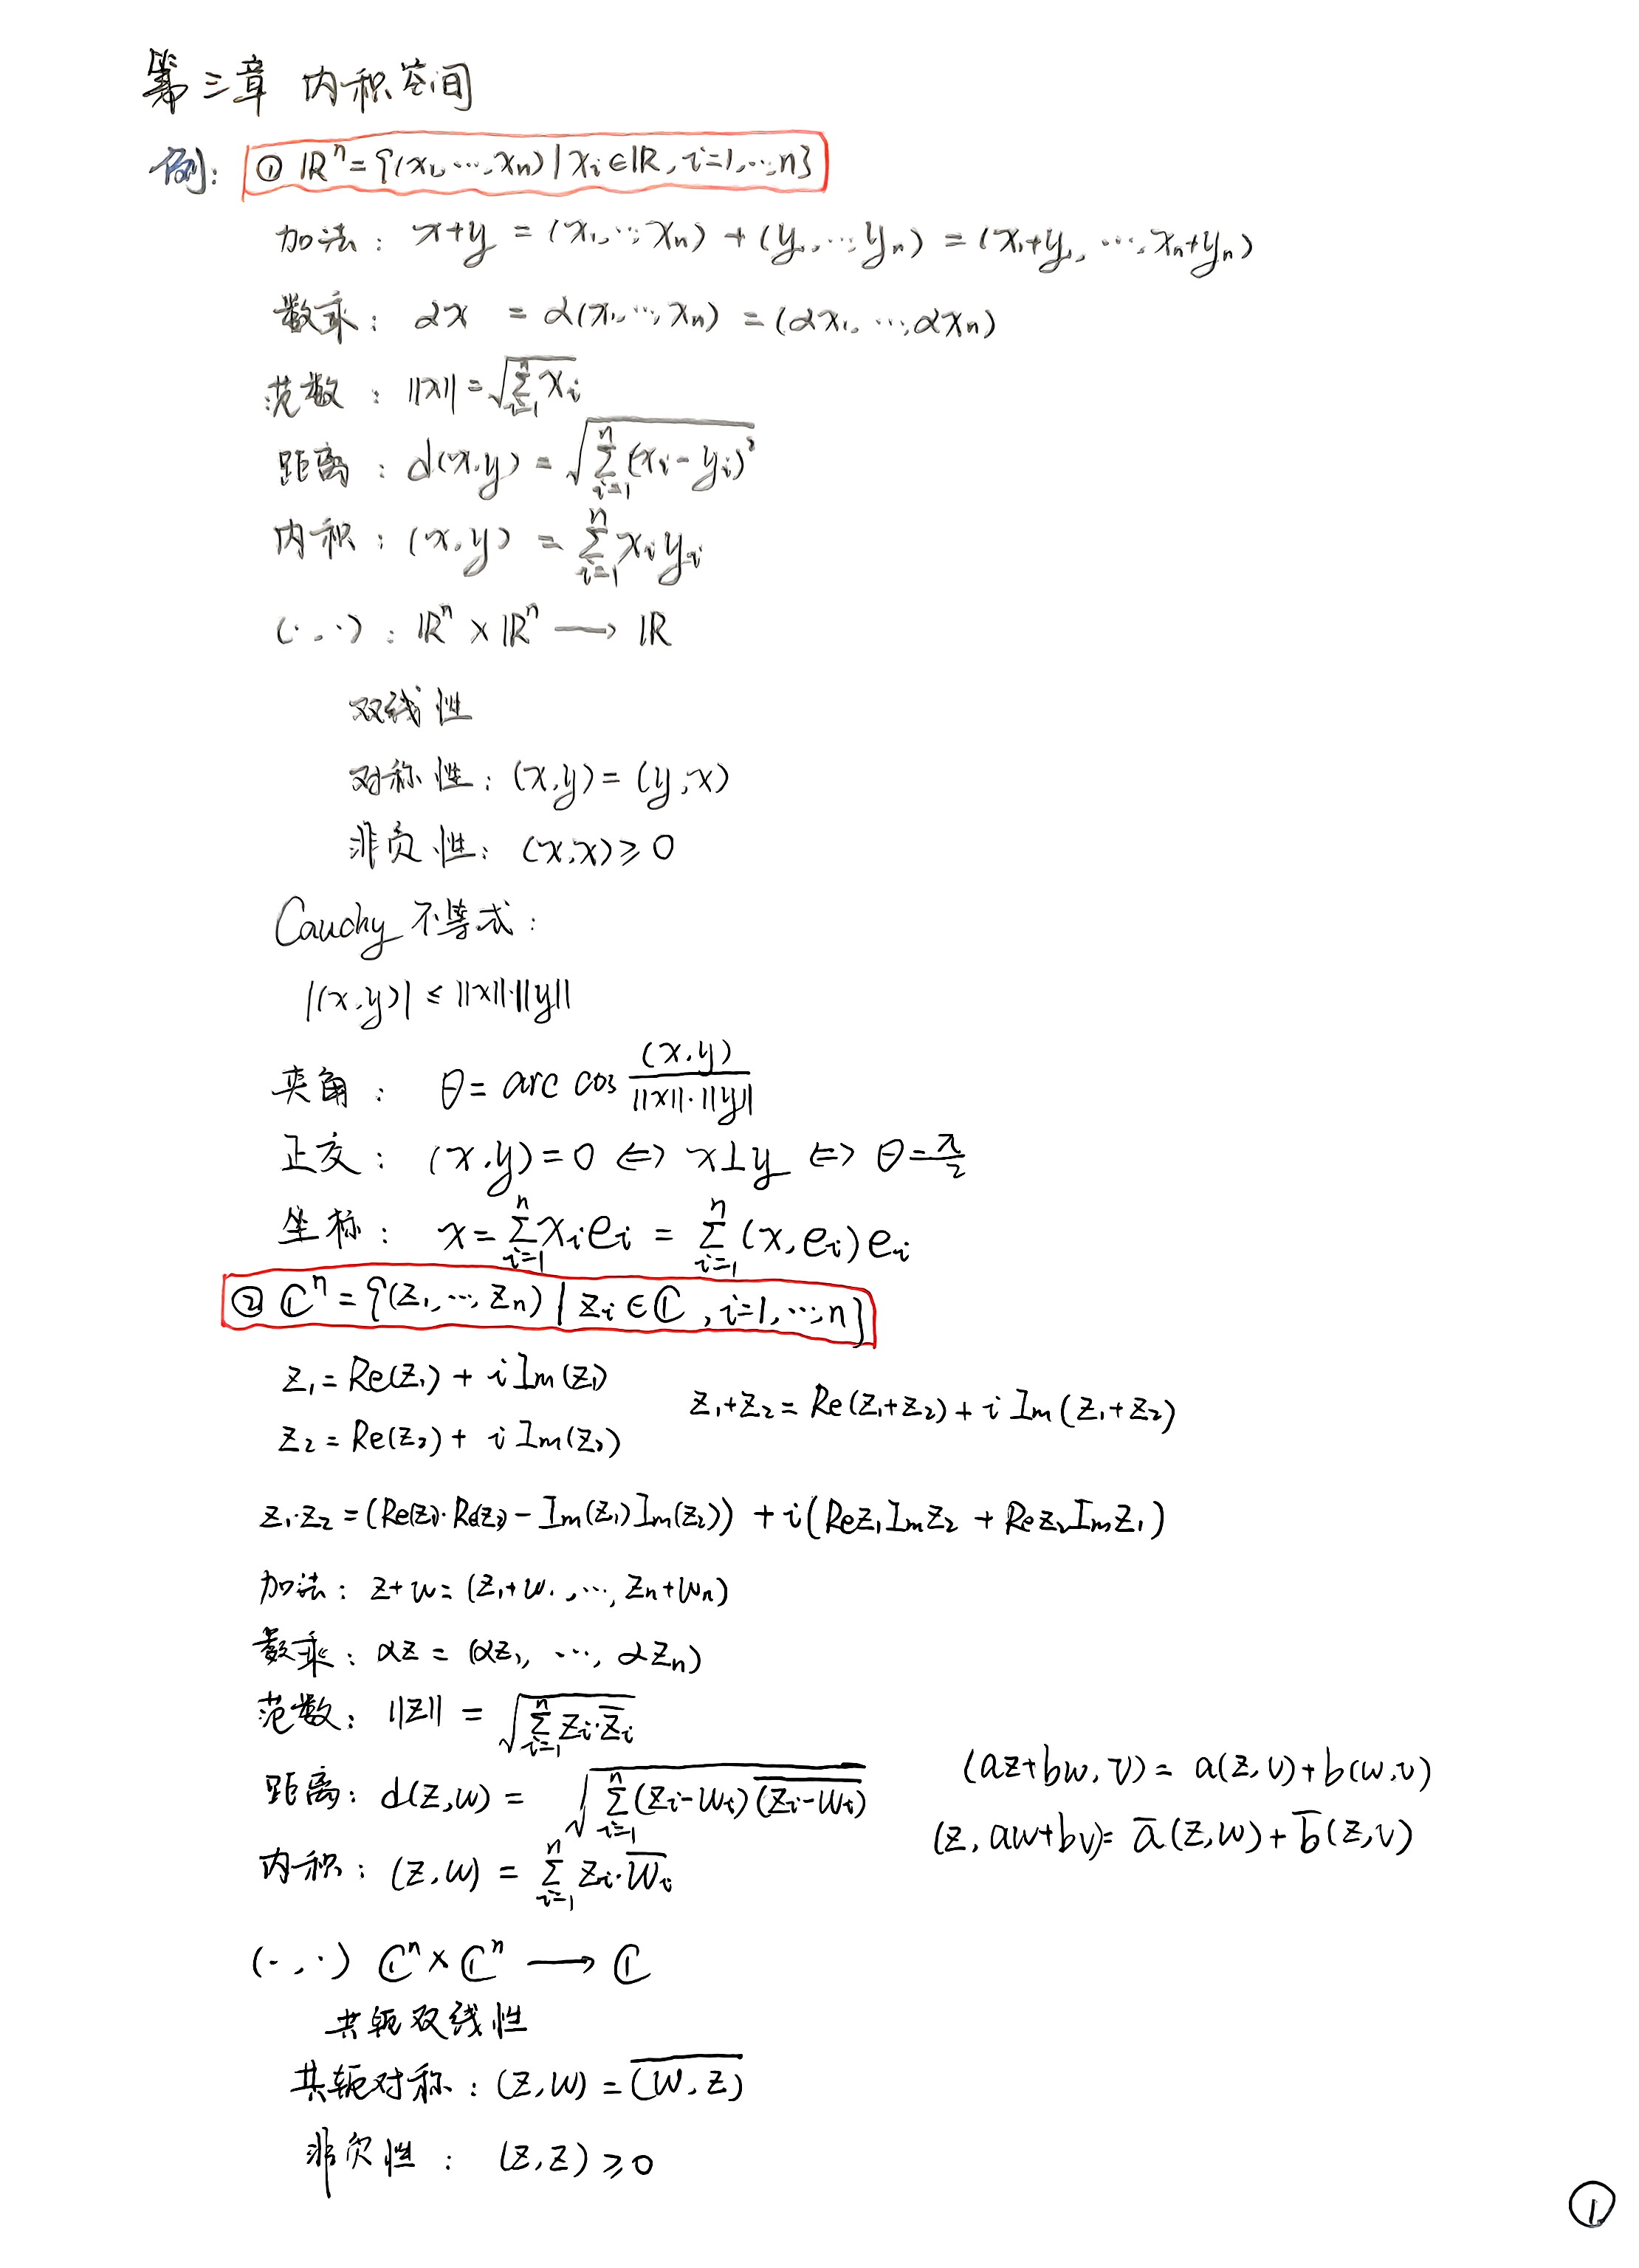 第三章 内积空间
例: ① ℝⁿ = {(x₁, ⋯, xₙ) | xᵢ ∈ ℝ, i=1, ⋯, n}
加法: x+y = (x₁, ⋯, xₙ) + (y₁, ⋯, yₙ) = (x₁+y₁, ⋯, xₙ+yₙ)
数乘: αx = α(x₁, ⋯, xₙ) = (αx₁, ⋯, αxₙ)
范数: ||x|| = √(∑ᵢ₌₁ⁿ xᵢ)
距离: d(x,y) = √(∑ᵢ₌₁ⁿ (xᵢ-yᵢ)²)
内积: (x,y) = ∑ᵢ₌₁ⁿ xᵢyᵢ
(·,·): ℝⁿ × ℝⁿ ⟶ ℝ
双线性
对称性: (x,y) = (y,x)
非负性: (x,x) ≥ 0
Cauchy 不等式:
|(x,y)| ≤ ||x||·||y||
夹角: θ = arc cos (x,y)/(||x||·||y||)
正交: (x,y)=0 ⇔ x⊥y ⇔ θ=π/2
坐标: x = ∑ᵢ₌₁ⁿ xᵢeᵢ = ∑ᵢ₌₁ⁿ (x,eᵢ)eᵢ
② ℂⁿ = {(z₁, ⋯, zₙ) | zᵢ ∈ ℂ, i=1, ⋯, n}
z₁ = Re(z₁) + i Im(z₁)
z₂ = Re(z₂) + i Im(z₂)
z₁+z₂ = Re(z₁+z₂) + i Im(z₁+z₂)
z₁·z₂ = (Re(z₁)·Re(z₂) - Im(z₁)Im(z₂)) + i(Rez₁Imz₂ + Rez₂Imz₁)
加法: z+w = (z₁+w₁, ⋯, zₙ+wₙ)
数乘: αz = (αz₁, ⋯, αzₙ)
范数: ||z|| = √(∑ᵢ₌₁ⁿ zᵢ·z̅ᵢ)
距离: d(z,w) = √(∑ᵢ₌₁ⁿ (zᵢ-wᵢ)\overline{(zᵢ-wᵢ)})
内积: (z,w) = ∑ᵢ₌₁ⁿ zᵢ·w̅ᵢ
(az+bw, v) = a(z,v)+b(w,v)
(z, aw+bv) = a̅(z,w)+b̅(z,v)
(·,·) ℂⁿ × ℂⁿ ⟶ ℂ
共轭双线性
共轭对称: (z,w) = \overline{(w,z)}
非负性: (z,z) ≥ 0
①